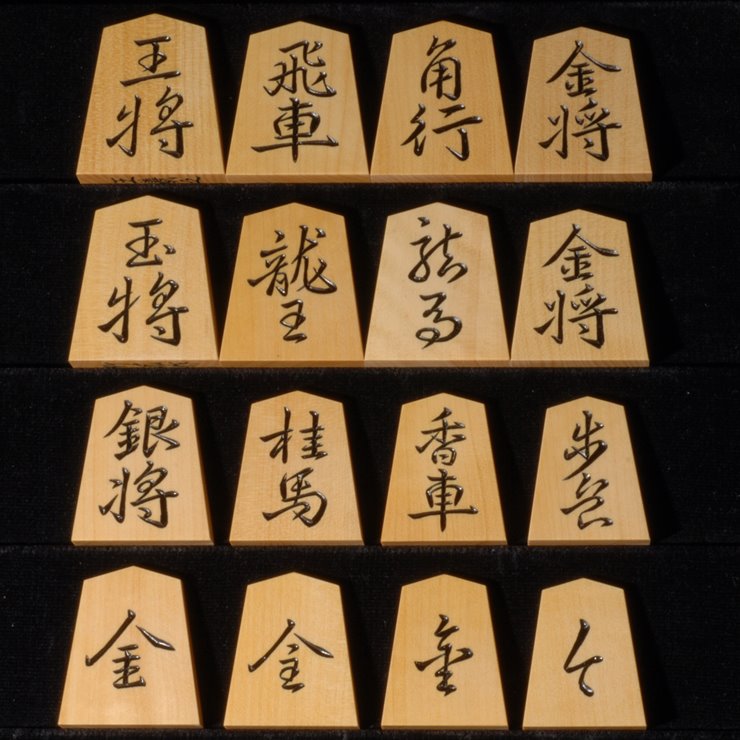 王将
飛車
角行
金将
玉将
龍王
龍馬
金将
銀将
桂馬
香車
歩兵
全
全
金
と